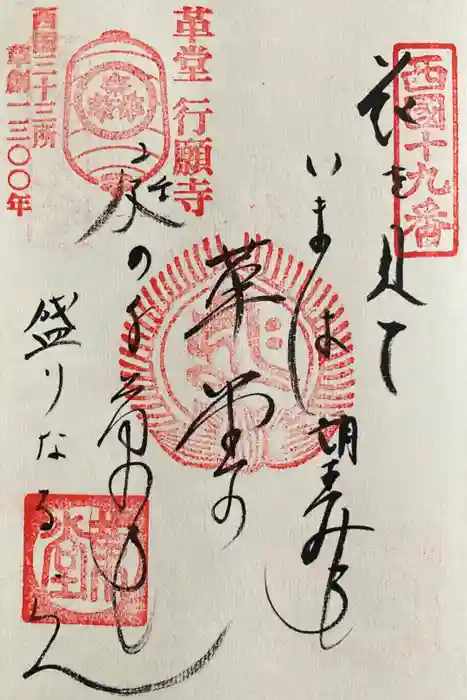 西國十九番
花を見て
いまは望みも
革堂の
庭の千草も
盛りなるらん
革堂 行願寺
西国三十三所
草創一三〇〇年
革堂